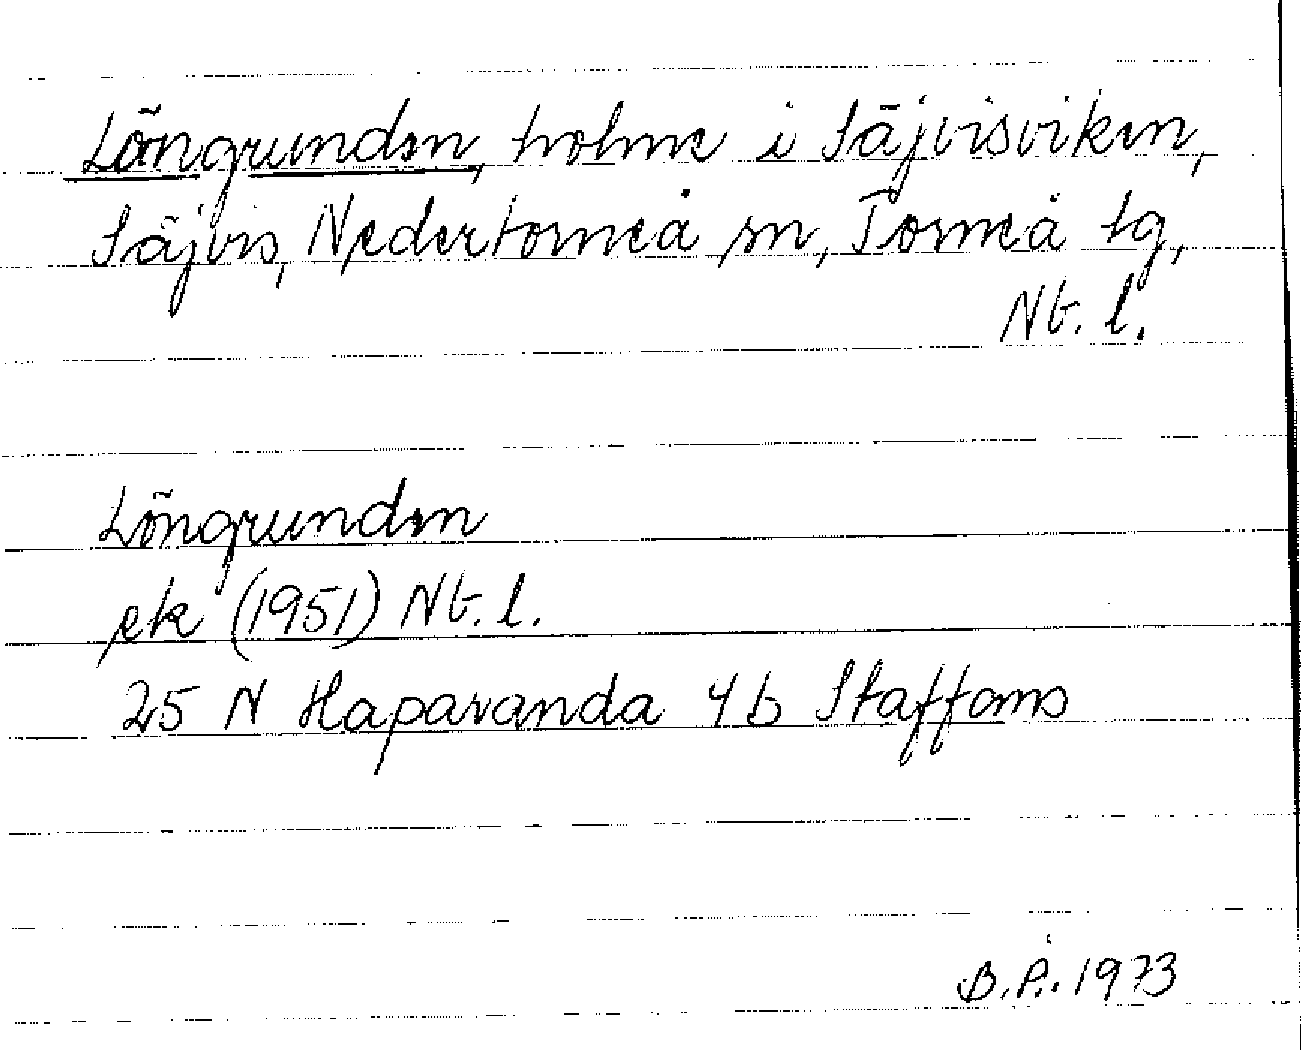 Löngrunden, holme i Säjvisviken,
Säjvis, Nedertorneå sn, Torneå tg,
Nb. l.
Löngrunden
ek (1951) Nb. l.
25 N Haparanda 4 b Staffans
B.P. 1973